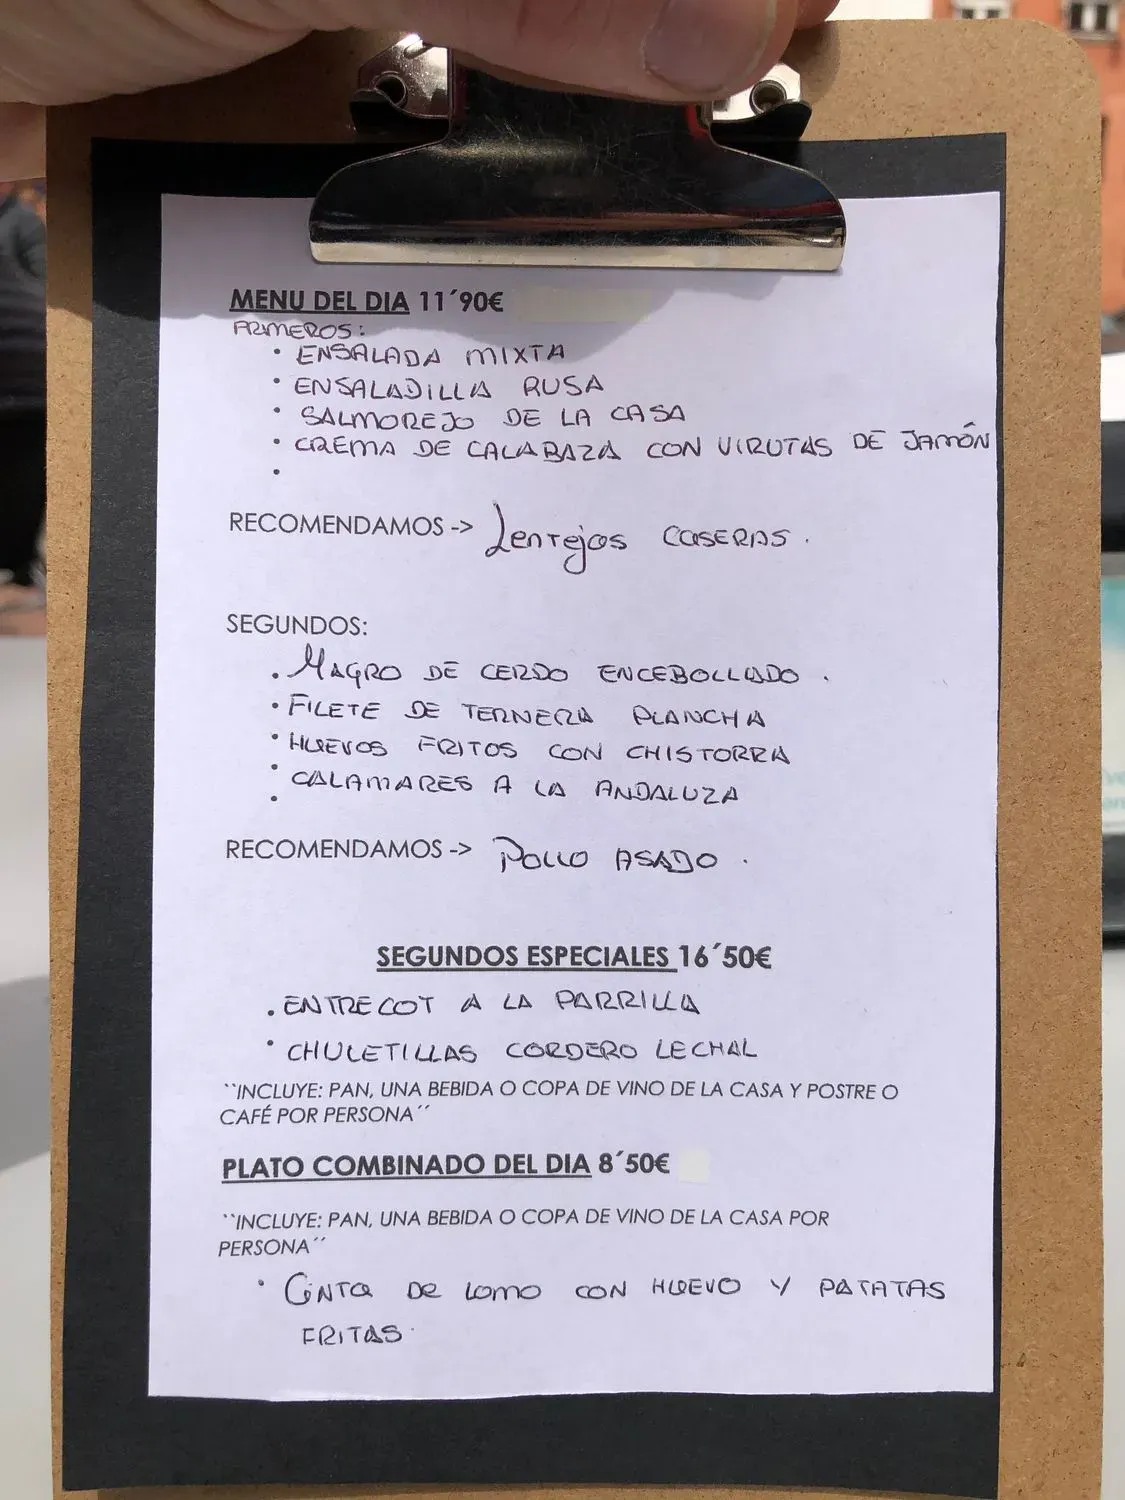 MENU DEL DIA 11´90€
PRIMEROS:
• ENSALADA MIXTA
• ENSALADILLA RUSA
• SALMOREJO DE LA CASA
• CREMA DE CALABAZA CON VIRUTAS DE JAMÓN
•
RECOMENDAMOS -> Lentejas CASERAS.
SEGUNDOS:
• MAGRO DE CERDO ENCEBOLLADO.
• FILETE DE TERNERA PLANCHA
• HUEVOS FRITOS CON CHISTORRA
• CALAMARES A LA ANDALUZA
•
RECOMENDAMOS -> POLLO ASADO.
SEGUNDOS ESPECIALES 16´50€
• ENTRECOT A LA PARRILLA
• CHULETILLAS CORDERO LECHAL
``INCLUYE: PAN, UNA BEBIDA O COPA DE VINO DE LA CASA Y POSTRE O
CAFÉ POR PERSONA´´
PLATO COMBINADO DEL DIA 8´50€
``INCLUYE: PAN, UNA BEBIDA O COPA DE VINO DE LA CASA POR
PERSONA´´
• CINTA DE LOMO CON HUEVO Y PATATAS
FRITAS.